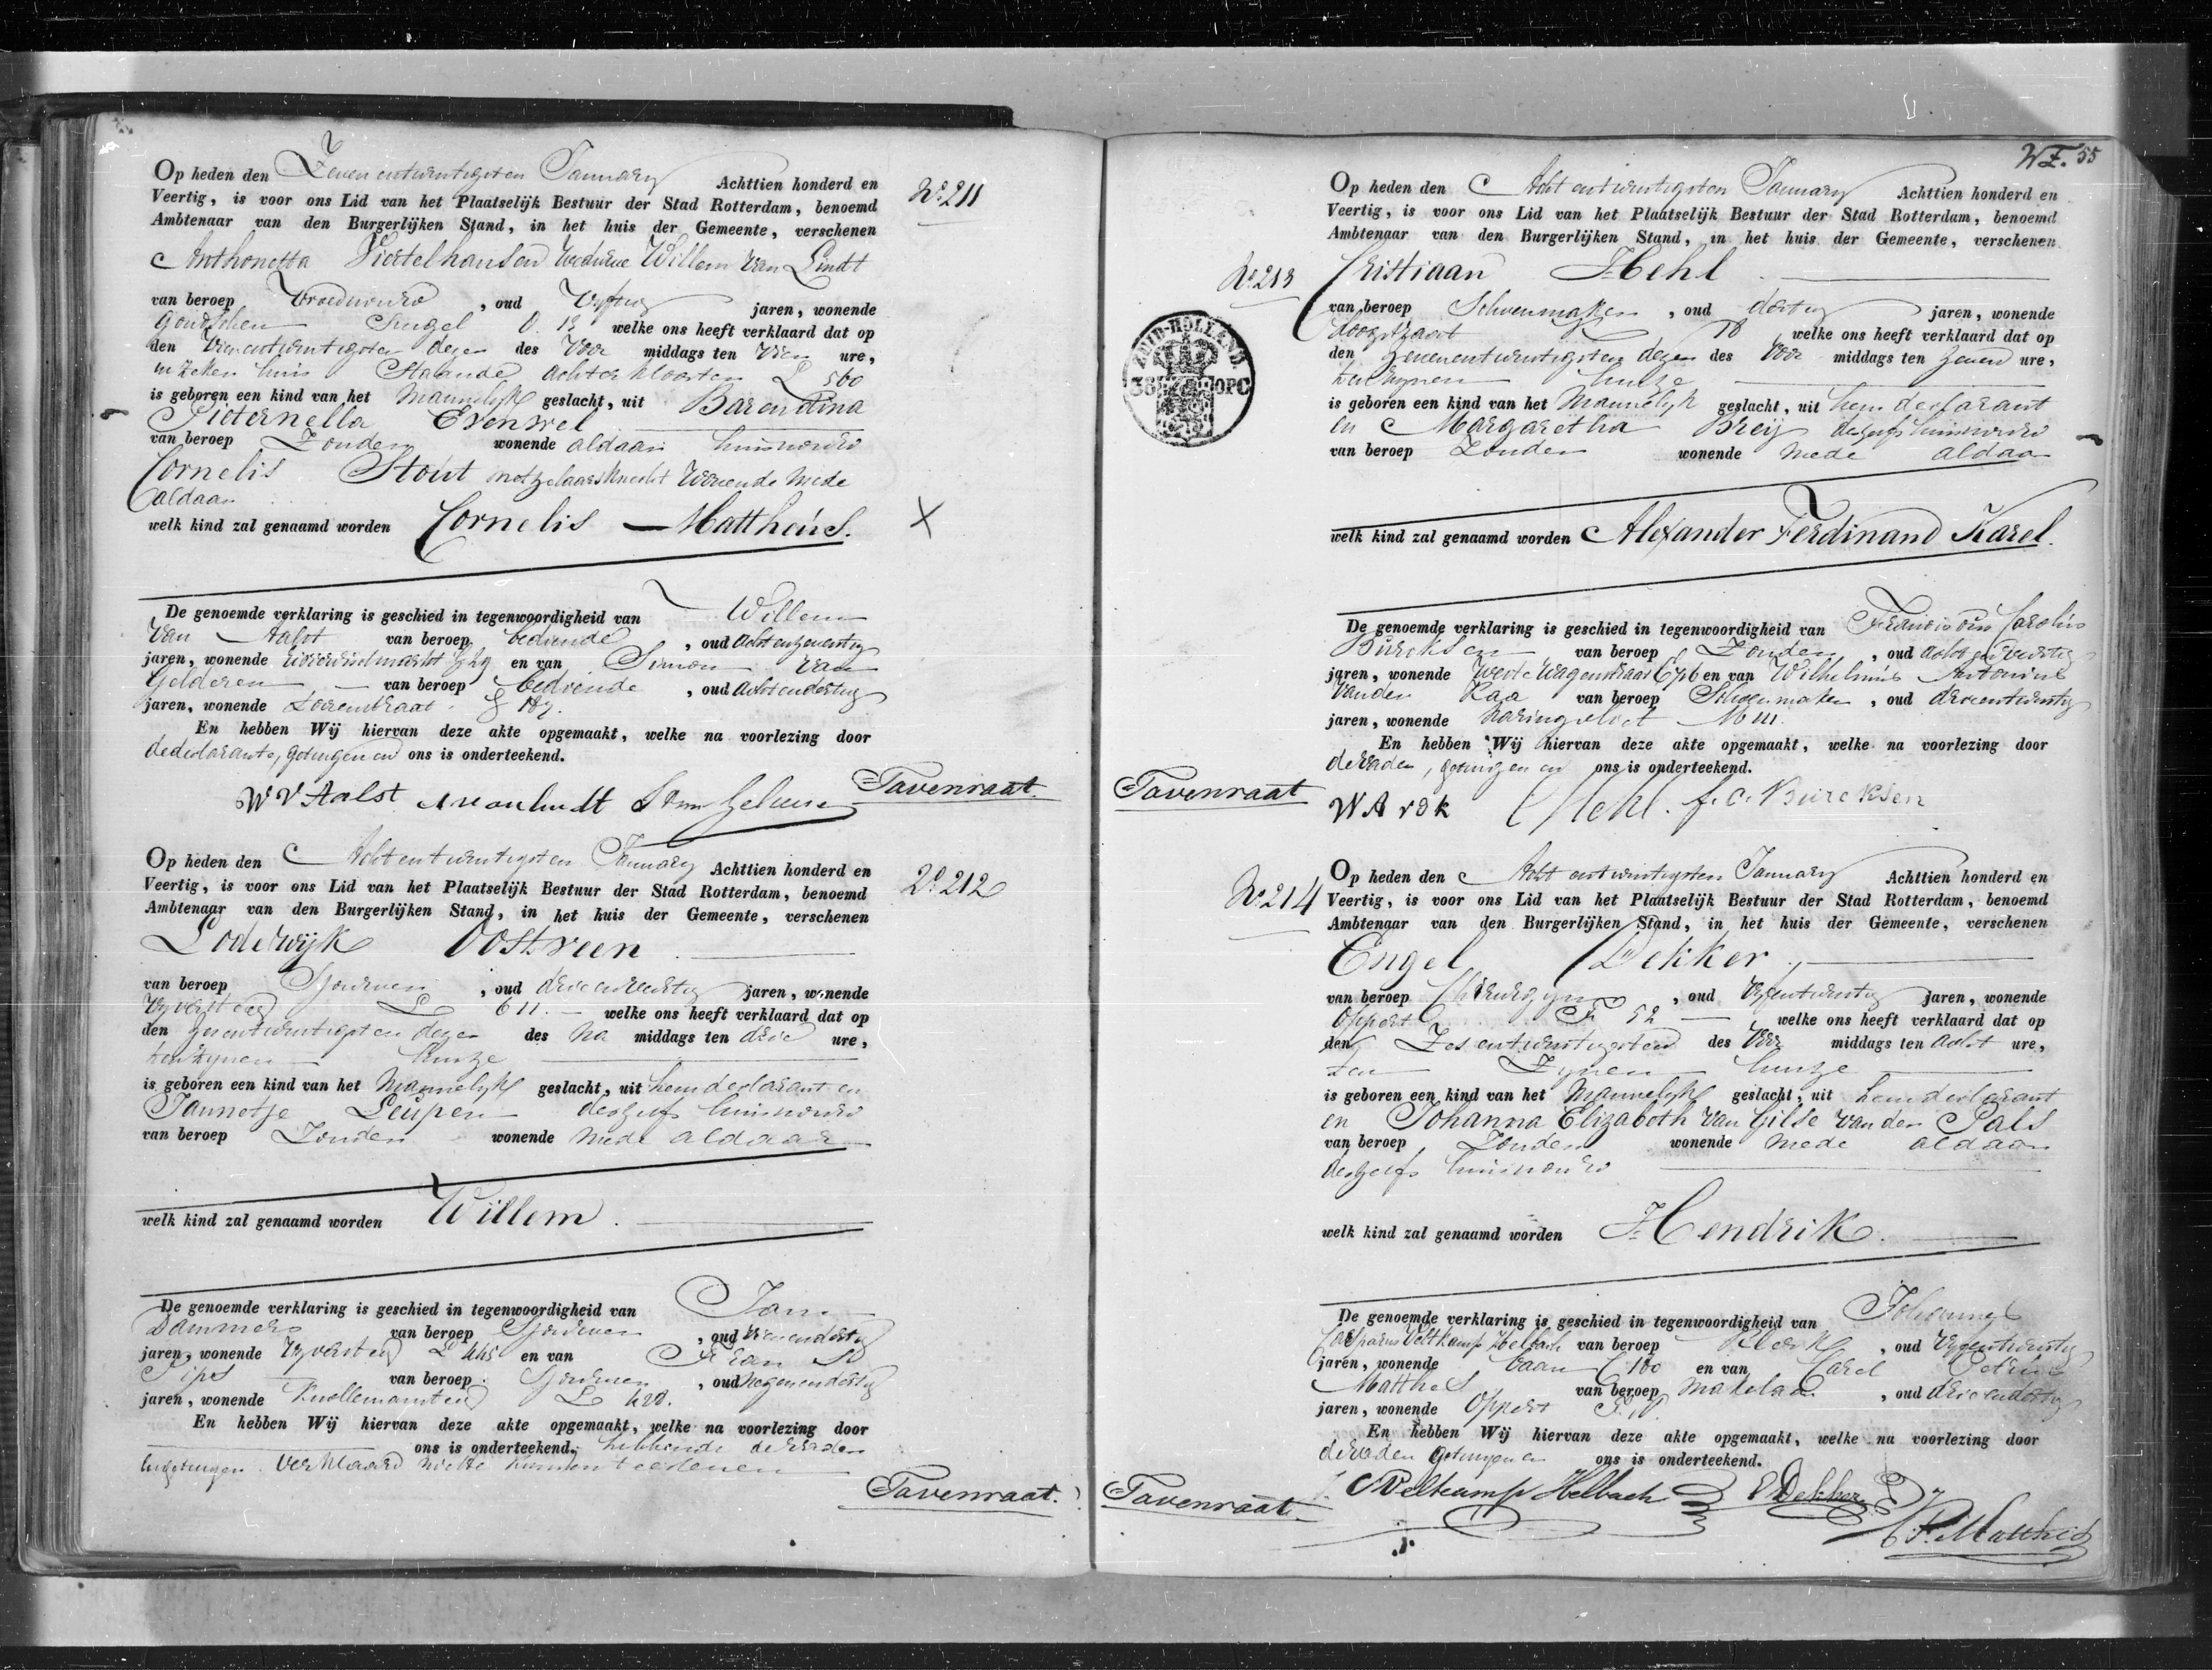 Op heden den Zevenentwintigsten January Achttien honderd en
Veertig, is voor ons Lid van het Plaatselijk Bestuur der Stad Rotterdam, benoemd
Ambtenaar van den Burgerlijken Stand, in het huis der Gemeente, verschenen
No 211
Anthonetta Viertelhausen weduwe Willem van Lindt
van beroep Vroedvrouw, oud Vyftig jaren, wonende
Goudschen Singel O. 13 welke ons heeft verklaard dat op
den Vierentwintigsten dezer des Voor middags ten Vier ure,
in zeker huis Staande Achterklooster L 560
is geboren een kind van het Mannelyk geslacht, uit Barendina
Pieternella Evenwel
van beroep Zonder wonende aldaar huisvrouw
Cornelis Stout metzelaarsknecht wonende mede
aldaar
welk kind zal genaamd worden Cornelis Mattheus.
X
De genoemde verklaring is geschied in tegenwoordigheid van Willem
van Aalst van beroep bediende, oud Achtenzeventig
jaren, wonende en van Simon van
Gelderen van beroep bediende, oud Achtendertig
jaren, wonende
En hebben Wij hiervan deze akte opgemaakt, welke na voorlezing door
de declarante, getuigen en ons is onderteekend.
W V Aalst S van Gelderen Tavenraat.
Op heden den Achtentwintigsten January Achttien honderd en
Veertig, is voor ons Lid van het Plaatselijk Bestuur der Stad Rotterdam, benoemd
Ambtenaar van den Burgerlijken Stand, in het huis der Gemeente, verschenen
No 212
Lodewijk Oostveen
van beroep Sjouwer, oud drieenveertig jaren, wonende
Vyversteeg L 611. welke ons heeft verklaard dat op
den Zesentwintigsten dezer des Na middags ten drie ure,
ten zynen huize
is geboren een kind van het Mannelyk geslacht, uit hem declarant en
Jannetje Leupen deszelfs huisvrouw
van beroep Zonder wonende mede aldaar
welk kind zal genaamd worden Willem.
De genoemde verklaring is geschied in tegenwoordigheid van Jan
Dammers van beroep Sjouwer, oud Vierendertig
jaren, wonende Vyversteeg L 445 en van
Pips van beroep Sjouwer, oud Negenendertig
jaren, wonende L 420.
En hebben Wij hiervan deze akte opgemaakt, welke na voorlezing door
ons is onderteekend, hebbende de Vader
en getuigen Verklaard niet te kunnen teekenen
Tavenraat.
WF. 55
Op heden den Achtentwintigsten January Achttien honderd en
Veertig, is voor ons Lid van het Plaatselijk Bestuur der Stad Rotterdam, benoemd
Ambtenaar van den Burgerlijken Stand, in het huis der Gemeente, verschenen
No 213
Cristiaan Hehl
van beroep Schoenmaker, oud dertig jaren, wonende
welke ons heeft verklaard dat op
ZUID-HOLLAND
38 OPC
den Zevenentwintigsten dezer des Voor middags ten Zeven ure,
ten zynen huize
is geboren een kind van het Mannelyk geslacht, uit hem declarant
en Margaretha Breij deszelfs huisvrouw
van beroep Zonder wonende mede aldaar
welk kind zal genaamd worden Alexander Ferdinand Karel.
De genoemde verklaring is geschied in tegenwoordigheid van Franciscus Carolus
Burcksen van beroep Zonder, oud Achtenveertig
jaren, wonende en van Wilhelmus Antonius
van der Kaa van beroep Schoenmaker, oud drieentwintig
jaren, wonende Haringvliet
En hebben Wij hiervan deze akte opgemaakt, welke na voorlezing door
de Vader, getuigen en ons is onderteekend.
Tavenraat W A v d k C Hehl. f. C. Burcksen
Op heden den Achtentwintigsten January Achttien honderd en
No 214
Veertig, is voor ons Lid van het Plaatselijk Bestuur der Stad Rotterdam, benoemd
Ambtenaar van den Burgerlijken Stand, in het huis der Gemeente, verschenen
Engel Dekker
van beroep Chirurgyn, oud Vyfentwintig jaren, wonende
Oppert F 52 welke ons heeft verklaard dat op
den Zesentwintigsten des Voor middags ten Acht ure,
ten Zynen huize
is geboren een kind van het Mannelyk geslacht, uit hem declarant
en Johanna Elizabeth van Gilse van der Pals
van beroep Zonder wonende mede aldaar
deszelfs huisvrouw
welk kind zal genaamd worden Hendrik.
De genoemde verklaring is geschied in tegenwoordigheid van Johannes
Casparus Veltkamp Helbach van beroep Klerk, oud Vyfentwintig
jaren, wonende Baan C 180 en van Carel Petrus
Matthes van beroep Makelaar, oud drieendertig
jaren, wonende Oppert
En hebben Wij hiervan deze akte opgemaakt, welke na voorlezing door
de Vader getuigen en ons is onderteekend.
Tavenraat Veltcamp Helbach E Dekker
C. P. Matthes